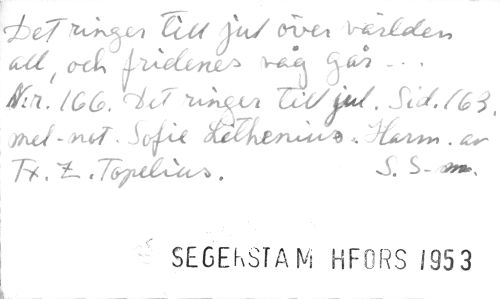 Det ringer till jul över världen
all, och fridenes våg går - - -
N:r. 166. Det ringer till jul. Sid. 163.
mel-not. Sofie Lithenius. Harm. av
Tx. Z. Topelius. S. S-m.
SEGERSTAM HFORS 1953